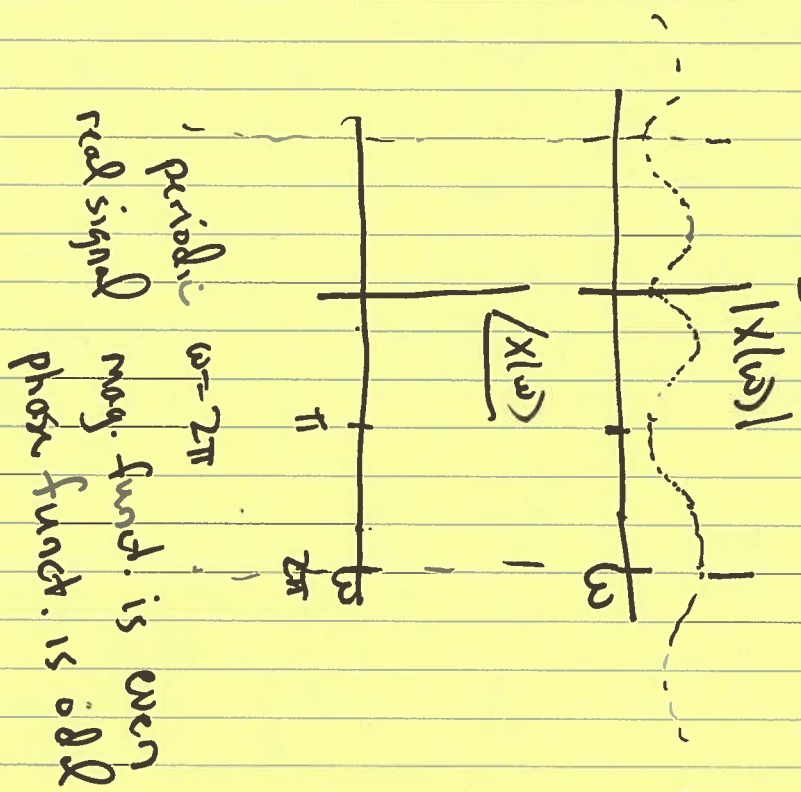 |X(ω)|
ω
/X(ω)
π
2π
ω
periodic ω = 2π
real signal mag. funct. is even
phase funct. is odd